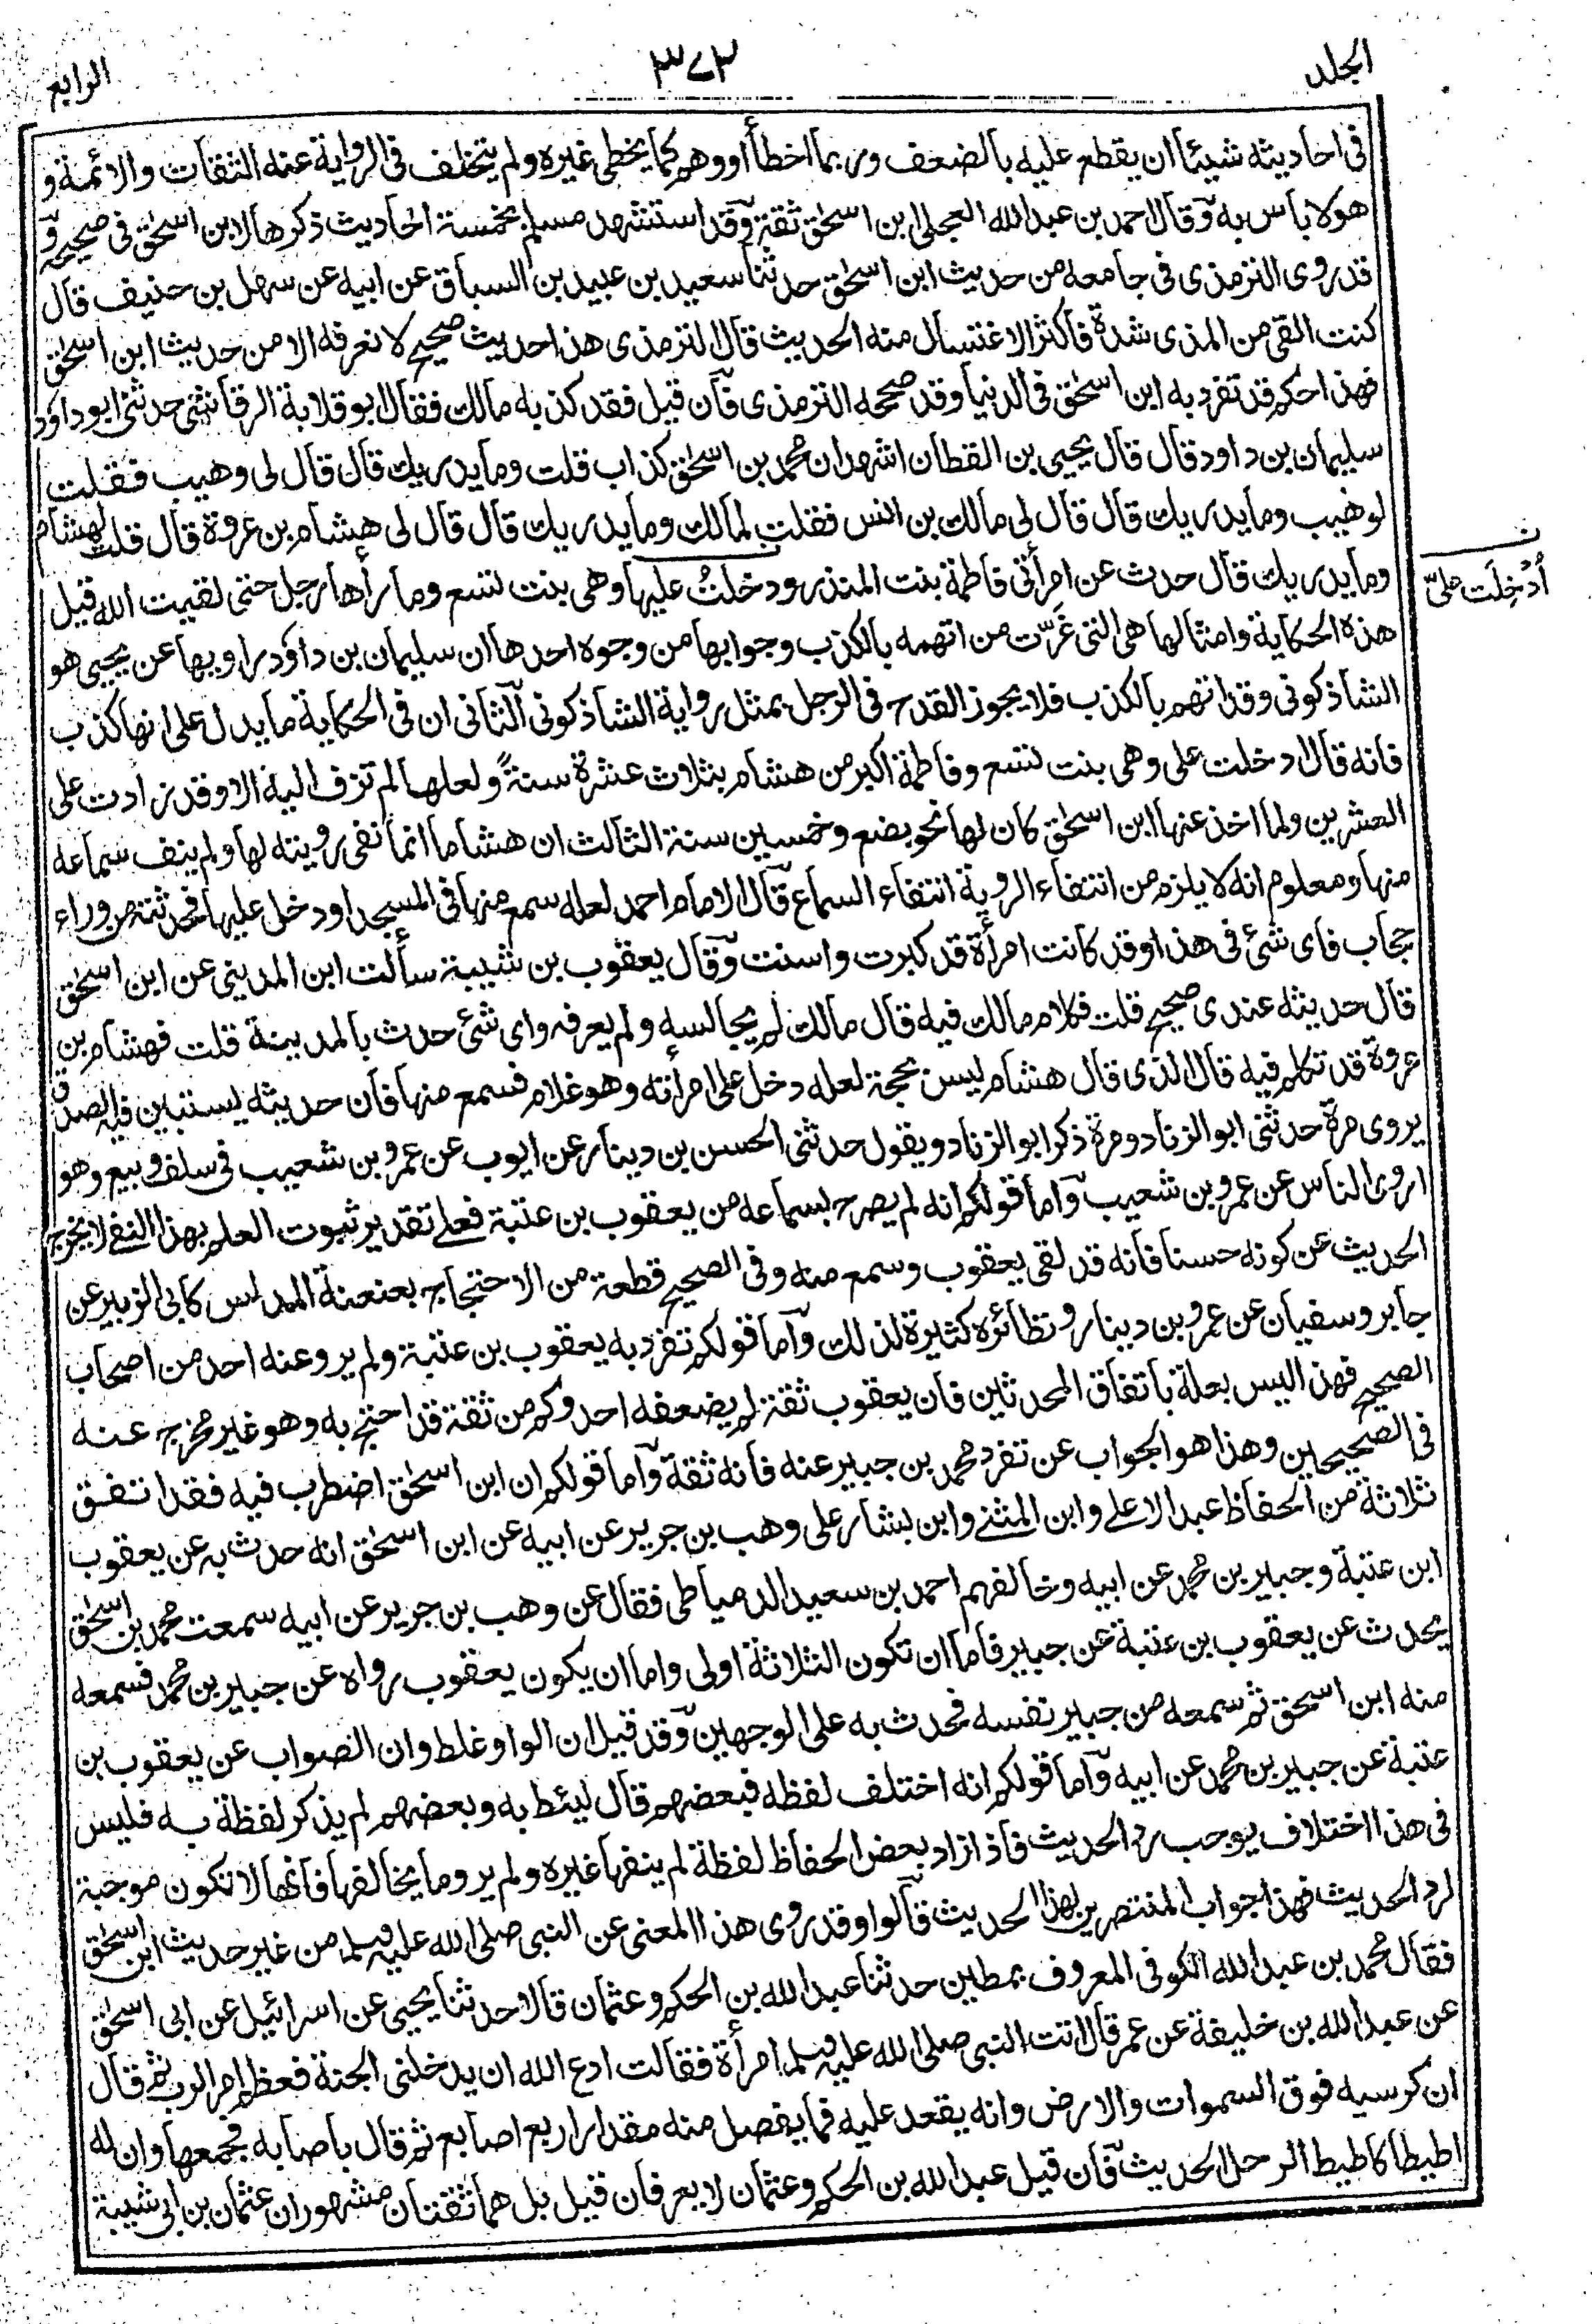 الجلد
٣٧٣
الرابع
فى احاديثه شيئا ان يقطع عليه بالضعف وربما اخطأ او وهم كما يخطى غيره ولم يتخلف فى الرواية عنه الثقات والائمة و
هو لا باس به وقال احمد بن عبد الله العجلى ابن اسحٰق ثقة وقد استشهد مسلم بخمسة احاديث ذكرها لابن اسحٰق فى صحيحه و
قد روى الترمذى فى جامعه من حديث ابن اسحٰق حدثنا سعيد بن عبيد بن السباق عن ابيه عن سهل بن حنيف قال
كنت القى من المذى شدة فاكثر الاغتسال منه الحديث قال الترمذى هذا حديث صحيح لا نعرفه الا من حديث ابن اسحٰق
فهذا حكم قد تفرد به ابن اسحٰق فى الدنيا وقد صححه الترمذى فان قيل فقد كذبه مالك فقال ابو قلابة الرقاشى حدثنى ابو داؤد
سليمان بن داود قال قال يحيى بن القطان اشهد ان محمد بن اسحٰق كذاب قلت وما يدريك قال قال لى وهيب فقلت
لوهيب وما يدريك قال قال لى مالك بن انس فقلت لمالك وما يدريك قال قال لى هشام بن عروة قال قلت لهشام
وما يدريك قال حدث عن امرأتى فاطمة بنت المنذر ودخلتُ عليها وهى بنت تسع وما رأها رجل حتى لقيت الله قيل
ن أُدْخِلَت علىّ
هذه الحكاية وامثالها هى التى غرّت من اتهمه بالكذب وجوابها من وجوه احدها ان سليمان بن داؤد راويها عن يحيى هو
الشاذكونى وقد اتهم بالكذب فلا يجوز القدح فى الرجل بمثل رواية الشاذكونى الثانى ان فى الحكاية ما يدل على انها كذب
فانه قال ادخلت على وهى بنت تسع وفاطمة اكبر من هشام بثلاث عشرة سنةً ولعلها لم تزف اليه الا وقد زادت على
العشرين ولما اخذ عنها ابن اسحٰق كان لها نحو بضع وخمسين سنة الثالث ان هشاما انما نفى رويته لها ولم ينف سماعه
منها ومعلوم انه لا يلزم من انتفاء الروية انتفاء السماع قال الامام احمد لعله سمع منها فى المسجد او دخل عليها فحدثته من وراء
حجاب فاى شئ فى هذا وقد كانت امرأة قد كبرت واسنت وقال يعقوب بن شيبة سألت ابن المدينى عن ابن اسحٰق
قال حديثه عندى صحيح قلت فكلام مالك فيه قال مالك لم يجالسه ولم يعرفه واى شئ حدث بالمدينة قلت فهشام بن
عروة قد تكلم فيه قال الذى قال هشام ليس بحجة لعله دخل على امرأته وهو غلام فسمع منها فان حديثه ليستبين فيه الصدق
يروى مرة حدثنى ابو الزناد ومرة ذكر ابو الزناد ويقول حدثنى الحسن بن دينار عن ايوب عن عمرو بن شعيب فى سلف وبيع وهو
اروى الناس عن عمرو بن شعيب واما قولكم انه لم يصرح بسماعه من يعقوب بن عتبة فعلى تقدير ثبوت العلم بهذا النفى لا يخرج
الحديث عن كونه حسنا فانه قد لقى يعقوب وسمع منه وفى الصحيح قطعة من الاحتجاج بعنعنة المدلس كابى الزبير عن
جابر وسفيان عن عمرو بن دينار ونظائره كثيرة لذلك واما قولكم تفرد به يعقوب بن عتبة ولم يرو عنه احد من اصحاب
الصحيح فهذا ليس بعلة باتفاق المحدثين فان يعقوب ثقة لم يضعفه احد وكم من ثقة قد احتج به وهو غير مخرج عنه
فى الصحيحين وهذا هو الجواب عن تفرد محمد بن جبير عنه فانه ثقة واما قولكم ان ابن اسحٰق اضطرب فيه فقد اتفق
ثلاثة من الحفاظ عبد الاعلى وابن المثنى وابن بشار على وهب بن جرير عن ابيه عن ابن اسحٰق انه حدث به عن يعقوب
ابن عتبة وجبير بن محمد عن ابيه وخالفهم احمد بن سعيد الدمياطى فقال عن وهب بن جرير عن ابيه سمعت محمد بن اسحٰق
يحدث عن يعقوب بن عتبة عن جبير فاما ان تكون الثلاثة اولى واما ان يكون يعقوب رواه عن جبير بن محمد فسمعه
منه ابن اسحق ثم سمعه من جبير نفسه فحدث به على الوجهين وقد قيل ان الواو غلط وان الصواب عن يعقوب بن
عتبة عن جبير بن محمد عن ابيه واما قولكم انه اختلف لفظه فبعضهم قال ليئط به وبعضهم لم يذكر لفظة به فليس
فى هذا اختلاف يوجب رد الحديث فاذا زاد بعض الحفاظ لفظة لم ينفها غيره ولم يرو ما يخالفها فانها لا تكون موجبة
لرد الحديث فهذا جواب المنتصرين لهذا الحديث قالوا وقد روى هذا المعنى عن النبى صلى الله عليه وسلم من غير حديث ابن اسحٰق
فقال محمد بن عبد الله الكوفى المعروف بمطين حدثنا عبد الله بن الحكم وعثمان قالا حدثنا يحيى عن اسرائيل عن ابى اسحٰق
عن عبد الله بن خليفة عن عمر قال اتت النبى صلى الله عليه وسلم امرأة فقالت ادع الله ان يدخلنى الجنة فعظم امر الرب ثم قال
ان كرسيه فوق السموات والارض وانه يقعد عليه فما يفصل منه مقدار اربع اصابع ثم قال باصابه فجمعها وان له
اطيطا كاطيط الرحل الحديث فان قيل عبد الله بن الحكم وعثمان لا يعرفان قيل بل هما ثقتان مشهوران عثمان بن ابى شيبة